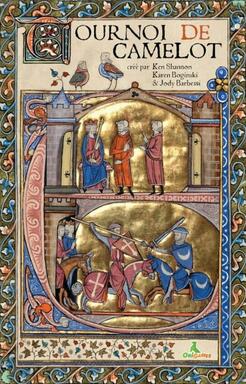 TOURNOI DE
CAMELOT
créé par Ken Shannon
Karen Boginski
& Jody Barbessi
OriGames